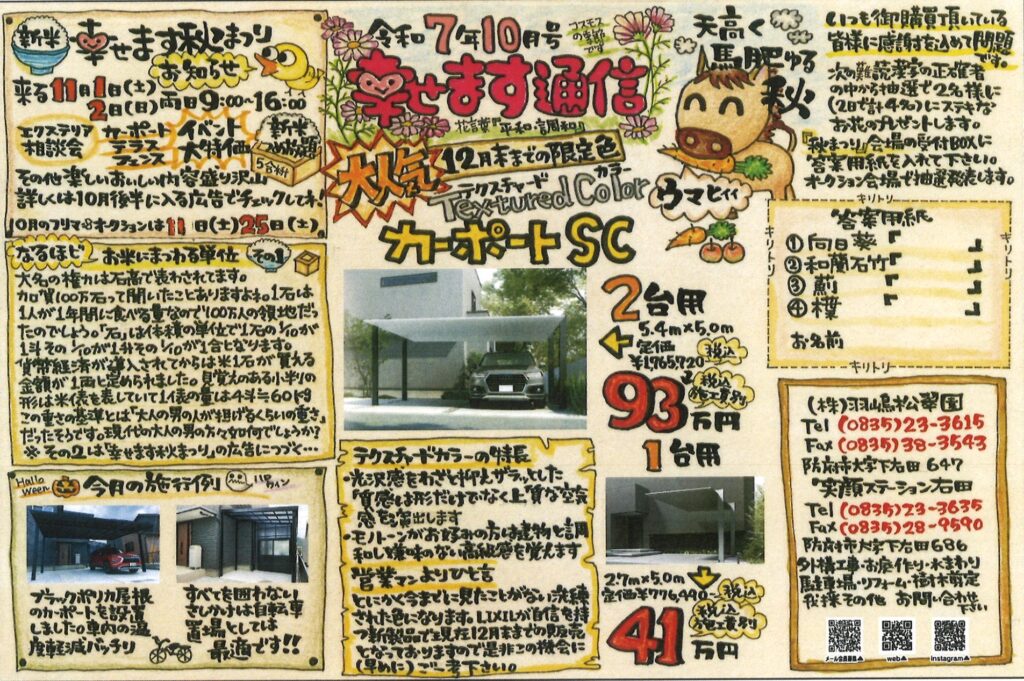 新米
幸せます秋まつり
お知らせ
来る11月1日(土)
2日(日)両日9:00~16:00
エクステリア
相談会
カーポート
テラス
フェンス
イベント
大特価
新米
つめ放題
5合枡
その他楽しいおいしい内容盛り沢山
詳しくは10月後半に入る広告でチェックしてネ!
10月のフリマ&オークションは11日(土)25日(土)
なるほど お米にまつわる単位 その1
大名の権力は石高で表わされてます。
加賀100万石って聞いたことありますよね。1石は
1人が1年間に食べる量なので100万人の領地だっ
たのでしょう。「石」は体積の単位で1石の1/10が
1斗その1/10が1升その1/10が1合となります。
貨幣経済が導入されてからは米1石が買える
金額が1両と定められました。見覚えのある小判の
形は米俵を表していて1俵の量は4斗≒60kg
この重さの基準とは「大人の男の人が担げるくらいの重さ」
だったそうです。現代の大人の男の方々如何でしょうか?
※その2は「幸せます秋まつり」の広告につづく…
Hallo
Ween
今月の施行例
ハロウィン
ブラックポリカ屋根
のカーポートを設置
しました。車内の温
度軽減バッチリ
すべてを囲わない
さしかけは自転車
置場としては
最適です!!
令和7年10月号
コスモス
の季節
です
幸せます通信
花言葉「平和・調和」
大人気
12月末までの限定色
テクスチャード カラー
Textured Color
カーポートSC
2台用
5.4m×5.0m
定価
¥1,765,720
税込
93万円
税込
施工費別
1台用
2.7m×5.0m
定価¥776,490~
税込
41万円
税込
施工費別
テクスチャードカラーの特長
・光沢感をわざと抑えサラッとした
質感は形だけでなく上質な空気
感を演出します
・モノトーンがお好みの方は建物と調
和し嫌味のない高級感を覚えます
営業マンよりひと言
とにかく今までに見たことがない洗練
された色になります。LIXILが自信を持
つ新製品で現在12月までの販売
となっておりますので是非この機会に
(早めに)ご一考下さい。
天高く
馬肥ゆる
秋
ウマヒィィ
いつも御購買頂いている
皆様に感謝を込めて問題
です。
次の難読漢字の正確者
の中から抽選で2名様に
(2日で計4名)にステキな
お花のプレゼントします。
『秋まつり』会場の受付BOXに
答案用紙を入れて下さい。
オークション会場で抽選発表します。
キリトリ
答案用紙
①向日葵『 』
②和蘭石竹『 』
③薊『 』
④樸『 』
お名前
キリトリ
キリトリ
キリトリ
(株)羽嶋松翠園
Tel (0835)23-3615
Fax (0835)38-3543
防府市大字下右田647
笑顔ステーション右田
Tel (0835)23-3635
Fax (0835)28-9590
防府市大字下右田686
外構工事・お庭作り・水まわり
駐車場・リフォーム・植木剪定
伐採その他 お問い合わせ
下さい
メール会員募集▲
web▲
Instagram▲